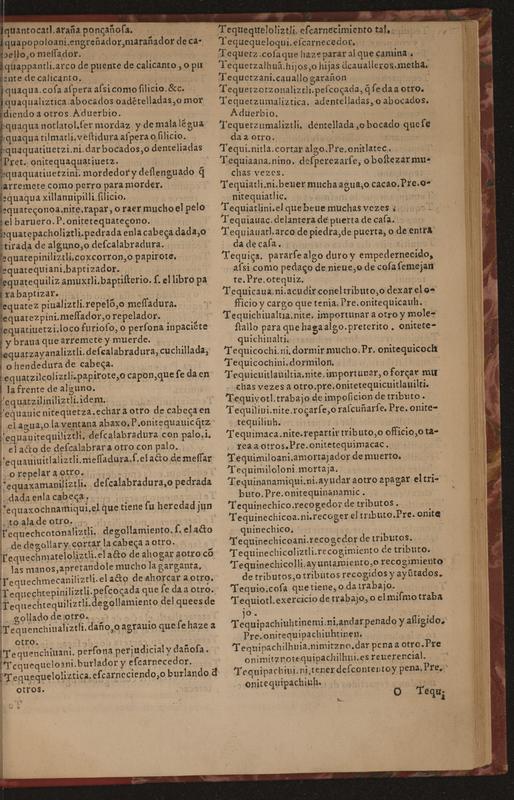 equantocatl. araña ponçañosa.
equapopoloani. engreñador, marañador de ca-
bello, o messador.
equappantli. arco de puente de calicanto, o pu
ente de calicanto.
equaqua. cosa aspera assi como silicio. &c.
equaqualiztica. abocados oadētelladas, o mor
diendo a otros Aduerbio.
equaqua notlatol. ser mordaz y de mala lēgua
equaqua tilmatli. vestidura aspera o silicio.
equaquatiuetzi. ni. dar bocados, o dentelladas
Pret. onitequaquatiuetz.
equaquatiuetzini. mordedor y deslenguado q̃
arremete como perro para morder.
equaqua xillanuipilli. silicio.
equateçonoa. nite. rapar, o raer mucho el pelo
el baruero. P. onitequateçono.
equatepacholiztli. pedrada enla cabeça dada, o
tirada de alguno, o descalabradura.
equatepiniliztli. coxcorron, o papirote.
equatequiani. baptizador.
equatequiliz amuxtli. baptisterio. s. el libro pa
ra baptizar.
equatez piualiztli. repelō, o messadura.
equatezpini. messador, o repelador.
equatiuetzi. loco furioso, o persona inpaciēte
y braua que arremete y muerde.
equatzayanaliztli. descalabradura, cuchillada,
o hendedura de cabeça.
equatzilcoliztli. papirote, o capon, que se da en
la frente de alguno.
equatziliniliztli. idem.
equauic nitequetza. echar a otro de cabeça en
el agua, o la ventana abaxo. P. onitequauicq̃tz
equauitequiliztli. descalabradura con palo, i.
el acto de descalabrar a otro con palo.
equauiuitlaliztli. messadura. s. el acto de messar
o repelar a otro.
equaxamaniliztli. descalabradura, o pedrada
dada enla cabeça.
equaxochnamiqui. el que tiene su heredad jun
to ala de otro.
Tequechcotonaliztli. degollamiento. s. el acto
de degollar y cortar la cabeça a otro.
Tequechmateloliztli. el acto de ahogar aotro cō
las manos, apretandole mucho la garganta.
Tequechmecaniliztli. el acto de ahorcar a otro.
Tequechtepiniliztli. pescoçada que se da a otro.
Tequechtequiliztli. degollamiento del quees de
gollado de otro.
Tequenchiualiztli. daño, o agrauio que se haze a
otro.
Tequenchiuani. persona perjudicial y dañosa.
Tequequeloani. burlador y escarnecedor.
Tequequeloliztica. escarneciendo, o burlando d̃
otros.
Tequequeloliztli. escarnecimiento tal.
Tequequeloqui. escarnecedor.
Tequetz. cosa que haze parar al que camina.
Tequetzalhuā. hijos, o hijas d̃caualleros. metha.
Tequetzani. cauallo garañon
Tequetzotzonaliztli. pescoçada, q̃ se da a otro.
Tequetzumaliztica. adentelladas, o abocados.
Aduerbio.
Tequetzumaliztli. dentellada, o bocado que se
da a otro.
Tequi. nitla. cortar algo. Pre. onitlatec.
Tequiaana. nino. desperezarse, o bostezar mu-
chas vezes.
Tequiatli. ni. beuer mucha agua, o cacao. Pre. o-
nitequiatlic.
Tequiatlini. el que beue muchas vezes.
Tequiauac. delantera de puerta de casa.
Tequiauatl. arco de piedra, de puerta, o de entra
da de casa.
Tequiça. pararse algo duro y empedernecido,
assi como pedaço de nieue, o de cosa semejan
te. Pre. otequiz.
Tequicaua. ni. acudir conel tributo, o dexar el o-
fficio y cargo que tenia. Pre. onitequicauh.
Tequichiualtia. nite. importunar a otro y mole-
stallo para que haga algo. preterito. onitete-
quichiualti.
Tequicochi. ni. dormir mucho. Pr. onitequicoch
Tequicochini. dormilon.
Tequicuitlauiltia. nite. importunar, o forçar mu
chas vezes a otro. pre. onitetequicuitlauilti.
Tequiyotl. trabajo de imposicion de tributo.
Tequilini. nite. roçarse, o rascuñarse. Pre. onite-
tequiliuh.
Tequimaca. nite. repartir tributo, o officio, o ta-
rea a otros. Pre. onitetequimacac.
Tequimiloani. amortajador de muerto.
Tequimiloloni. mortaja.
Tequinanamiqui. ni. ayudar aotro apagar el tri-
buto. Pre. onitequinanamic.
Tequinechico. recogedor de tributos.
Tequinechicoa. ni. recoger el tributo. Pre. onite
quinechico.
Tequinechicoani. recogedor de tributos.
Tequinechicoliztli. recogimiento de tributo.
Tequinechicolli. ayuntamiento, o recogimiento
de tributos, o tributos recogidos y ayūtados.
Tequio. cosa que tiene, o da trabajo.
Tequiotl. exercicio de trabajo, o el mismo traba
jo.
Tequipachiuhtinemi. ni. andar penado y affligido.
Pre. onitequipachiuhtinen.
Tequipachilhuia. nimitzno. dar pena a otro. Pre
onimitznotequipachilhui. es reuerencial.
Tequipachiui. ni. tener descontento y pena. Pre.
onitequipachiuh.
O Tequi